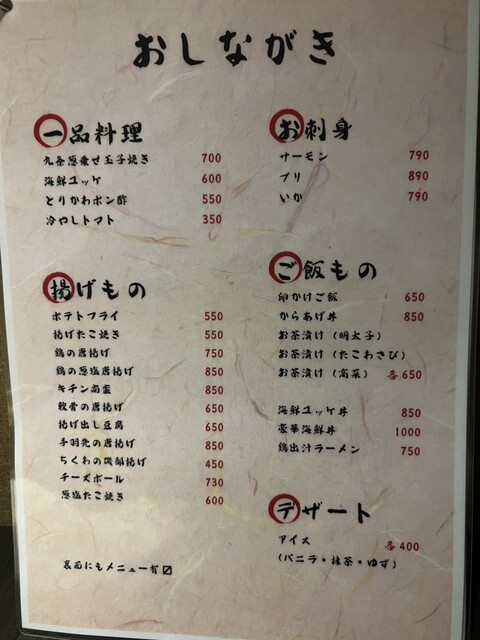 おしながき
一品料理
九条葱乗せ玉子焼き 700
海鮮ユッケ 600
とりかわポン酢 550
冷やしトマト 350
揚げもの
ポテトフライ 550
揚げたこ焼き 550
鶏の唐揚げ 750
鶏の葱塩唐揚げ 850
チキン南蛮 850
軟骨の唐揚げ 650
揚げ出し豆腐 650
手羽先の唐揚げ 850
ちくわの磯部揚げ 450
チーズボール 730
葱塩たこ焼き 600
裏面にもメニュー有〼
お刺身
サーモン 790
ブリ 890
いか 790
ご飯もの
卵かけご飯 650
からあげ丼 850
お茶漬け（明太子）
お茶漬け（たこわさび）
お茶漬け（高菜） 各650
海鮮ユッケ丼 850
豪華海鮮丼 1000
鶏出汁ラーメン 750
デザート
アイス 各400
（バニラ・抹茶・ゆず）